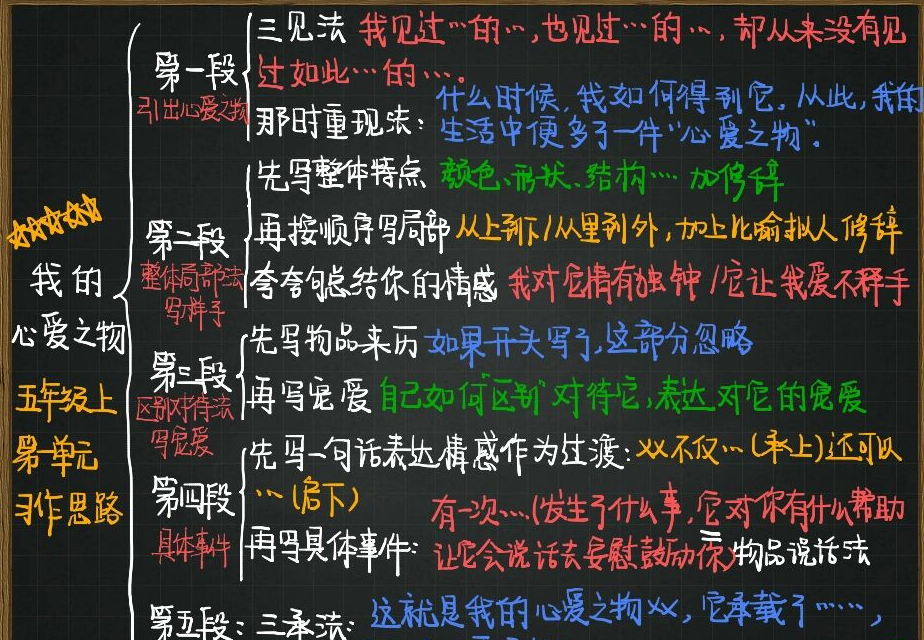 我的
心爱之物
五年级上
第一单元
习作思路
第一段
引出心爱之物
三见法 我见过…的…,也见过…的…,却从来没有见
过如此…的…。
那时重现法:
什么时候,我如何得到它。从此,我的
生活中便多了一件“心爱之物”。
第二段
整体局部法
写样子
先写整体特点 颜色、形状、结构… 加修辞
再按顺序写局部 从上到下/从里到外,加上比喻拟人修辞
夸夸句总结你的情感 我对它情有独钟/它让我爱不释手
第三段
区别对待法
写宠爱
先写物品来历 如果开头写了,这部分忽略
再写宠爱 自己如何“区别”对待它,表达对它的宠爱
第四段
具体事件
先写一句话表达情感作为过渡:XX不仅…(承上)还可以
…(启下)
再写具体事件:
有一次…(发生了什么事,它对你有什么帮助
让它会说话去安慰鼓励你)=物品说话法
第五段:三承法:这就是我的心爱之物XX,它承载了……,